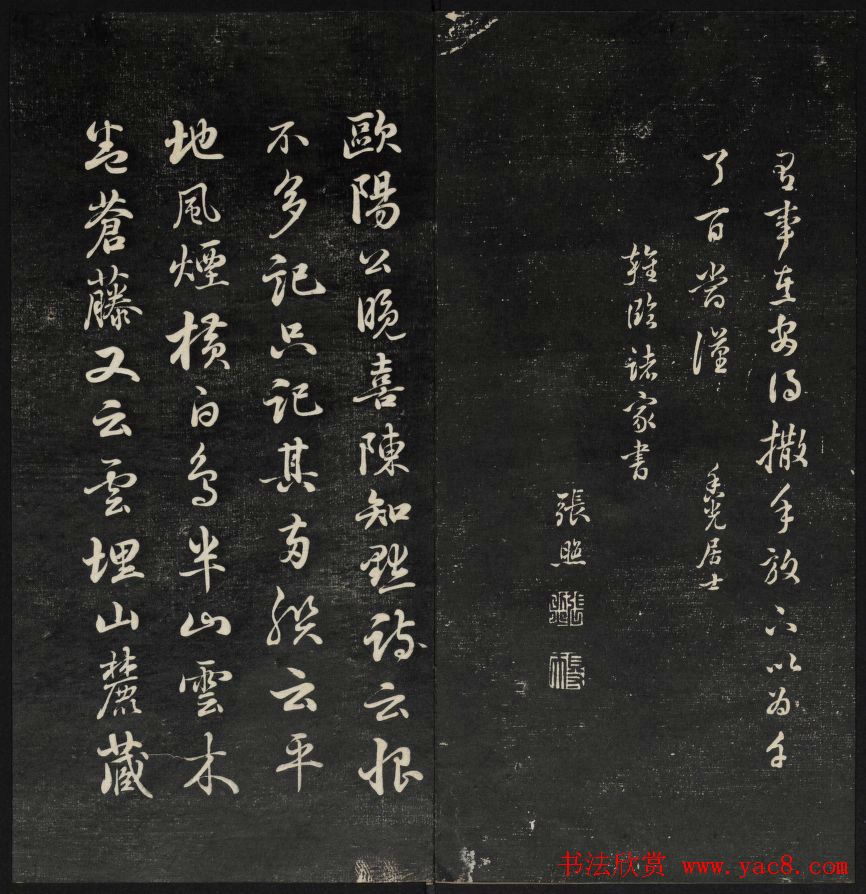 事在安得撒手放下以為千
了百當 香光居士
雜臨諸家書
張照
歐陽公晚喜陳知默詩云恨
不多記只記其兩聯云平
地風煙橫白鳥半山雲木
卷蒼藤又云雲埋山麓藏
书法欣赏 www.yac8.com